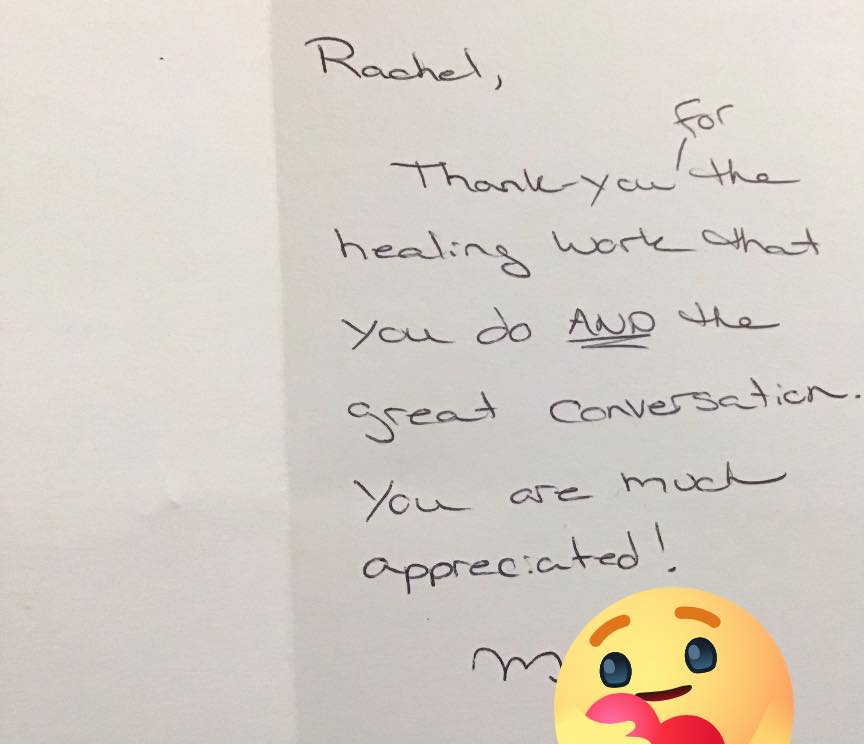 Rachel,
for
Thank-you the
healing work that
you do AND the
great conversation.
You are much
appreciated!